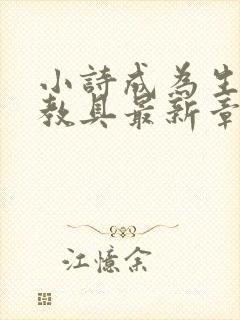 小詩成為生
教具最新章
江憶余